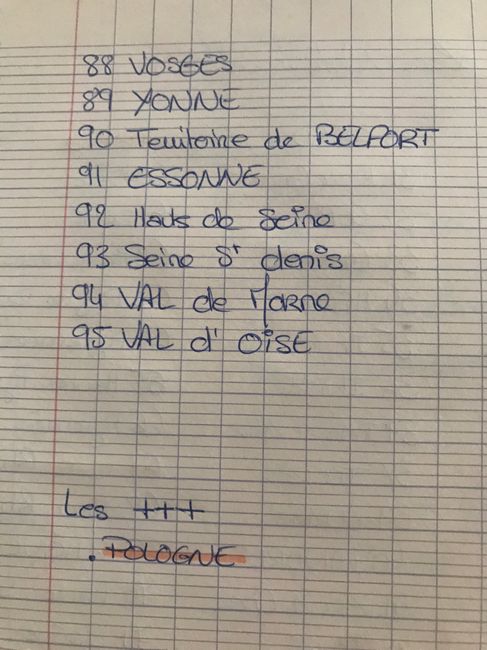 88 VOSGES
89 YONNE
90 Territoire de BELFORT
91 ESSONNE
92 Hauts de Seine
93 Seine St denis
94 VAL de Marne
95 VAL d' OISE
Les +++
. POLOGNE